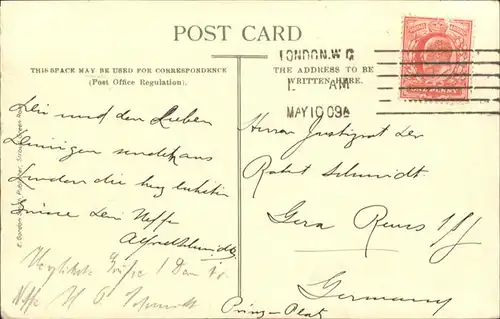 POST CARD
THIS SPACE MAY BE USED FOR CORRESPONDENCE
(Post Office Regulation).
THE ADDRESS TO BE
WRITTEN HERE.
LONDON.W.C
1. AM
MAY 10 09
Dir und den Lieben
Deinigen sendet aus
London die herzlichsten
Grüsse Dein Neffe
Alfred Schmidt
Herzlichste Grüße! Dein
Neffe Schmidt
Herrn Justizrat Dr
Robert Schmidt
Gera Reuss
Germany
Prinz-Platz